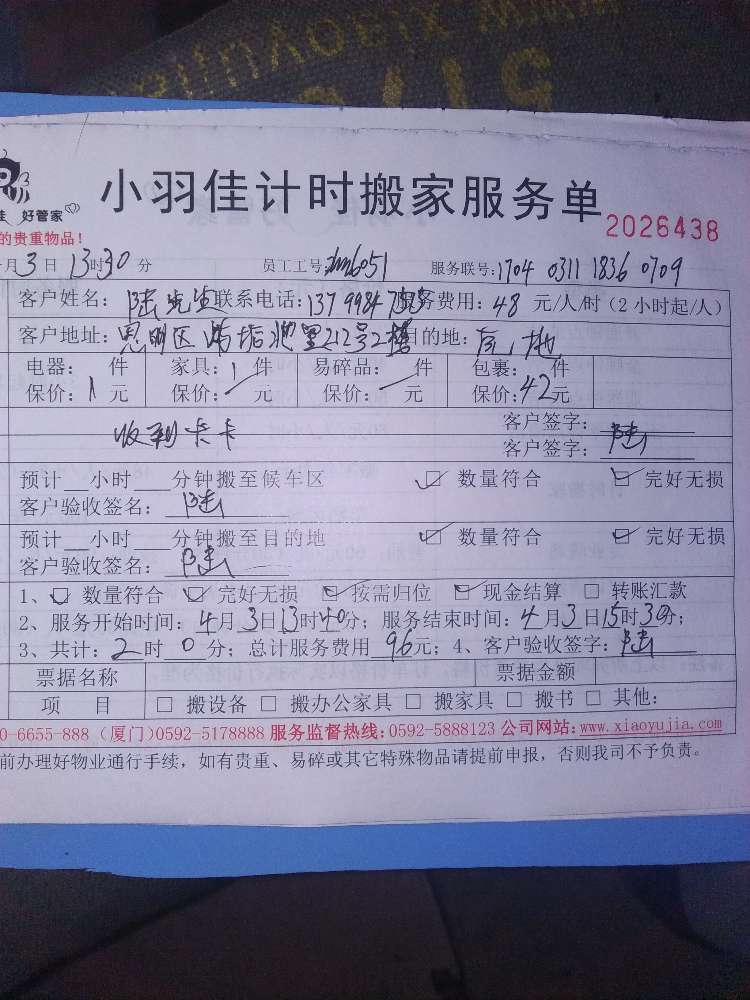 好管家
小羽佳计时搬家服务单
2026438
的贵重物品！
月3日13时30分 员工工号: 服务联号:1704 0311 1836 0709
客户姓名: 陆先生 联系电话: 服务费用: 48 元/人/时(2小时起/人)
客户地址: 思明区 里212号2楼 目的地:
电器: 件 家具: 1 件 易碎品: 件 包裹: 件
保价: 1 元 保价: 元 保价: 元 保价: 42元
收到卡卡
客户签字:
客户签字: 陆
预计 小时 分钟搬至候车区 ☑ 数量符合 ☑ 完好无损
客户验收签名: 陆
预计 小时 分钟搬至目的地 ☑ 数量符合 ☑ 完好无损
客户验收签名: 陆
1、☑ 数量符合 ☑ 完好无损 ☑ 按需归位 ☑ 现金结算 □ 转账汇款
2、服务开始时间: 4月3日13时40分; 服务结束时间: 4月3日15时30分;
3、共计: 2时 0分; 总计服务费用 96元; 4、客户验收签字: 陆
票据名称 票据金额
项 目 □ 搬设备 □ 搬办公家具 □ 搬家具 □ 搬书 □ 其他:
0-6655-888 (厦门)0592-5178888 服务监督热线:0592-5888123 公司网站:www.xiaoyujia.com
前办理好物业通行手续，如有贵重、易碎或其它特殊物品请提前申报，否则我司不予负责。